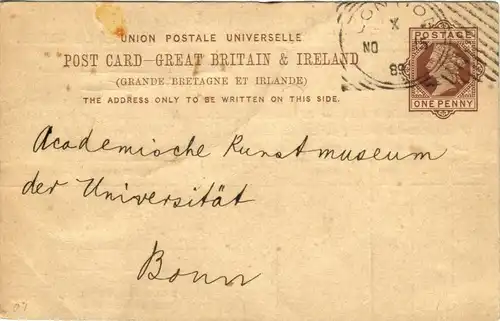 UNION POSTALE UNIVERSELLE
POST CARD—GREAT BRITAIN & IRELAND
(GRANDE BRETAGNE ET IRLANDE)
THE ADDRESS ONLY TO BE WRITTEN ON THIS SIDE.
LONDON
X
NO 5
89
POSTAGE
ONE PENNY
Academische Kunstmuseum
der Universität
Bonn